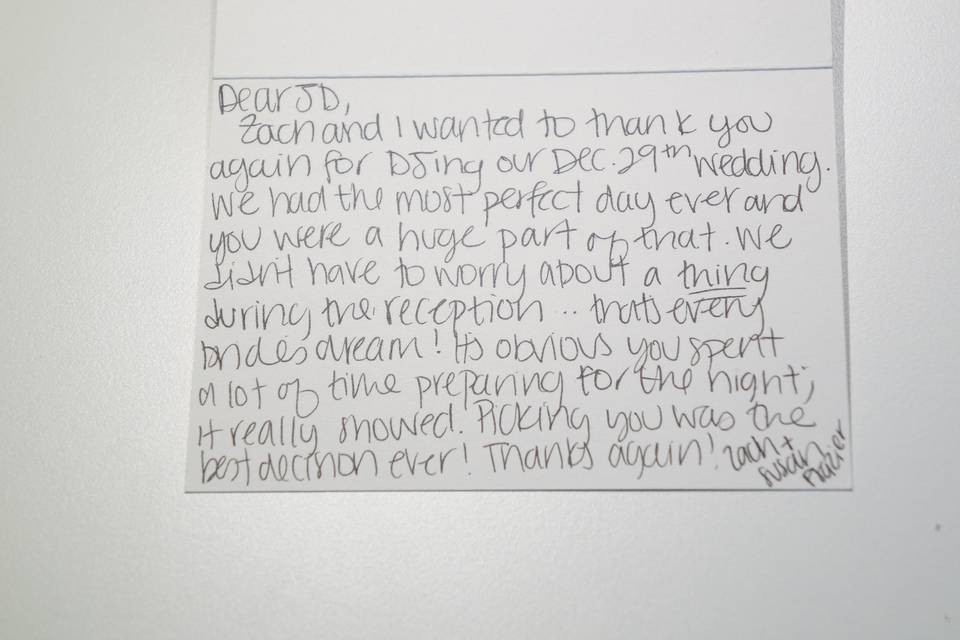 Dear JD,
Zach and I wanted to thank you
again for DJing our Dec. 29th wedding.
We had the most perfect day ever and
you were a huge part of that. We
didn't have to worry about a thing
during the reception .. that's every
brides dream! It's obvious you spent
a lot of time preparing for the night;
it really showed. Picking you was the
best decision ever! Thanks again! Zach +
Susan